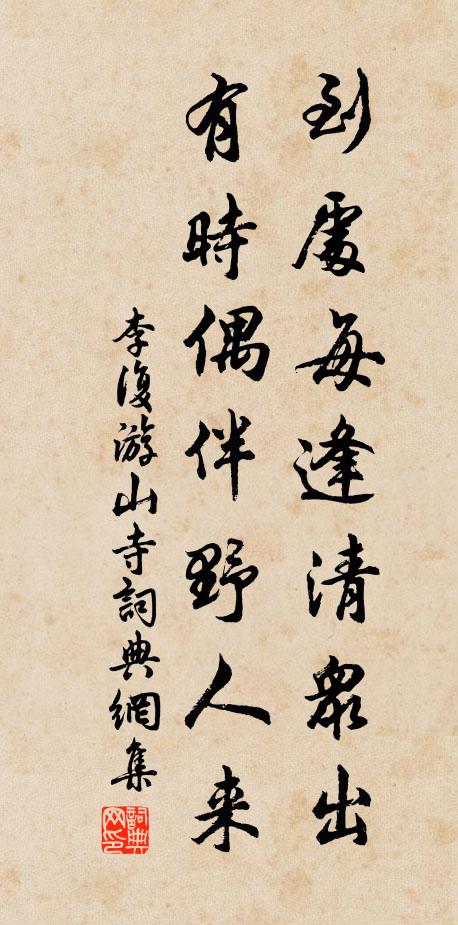 到處每逢清眾出
有時偶伴野人来
李復游山寺詞典網集
詞典网印